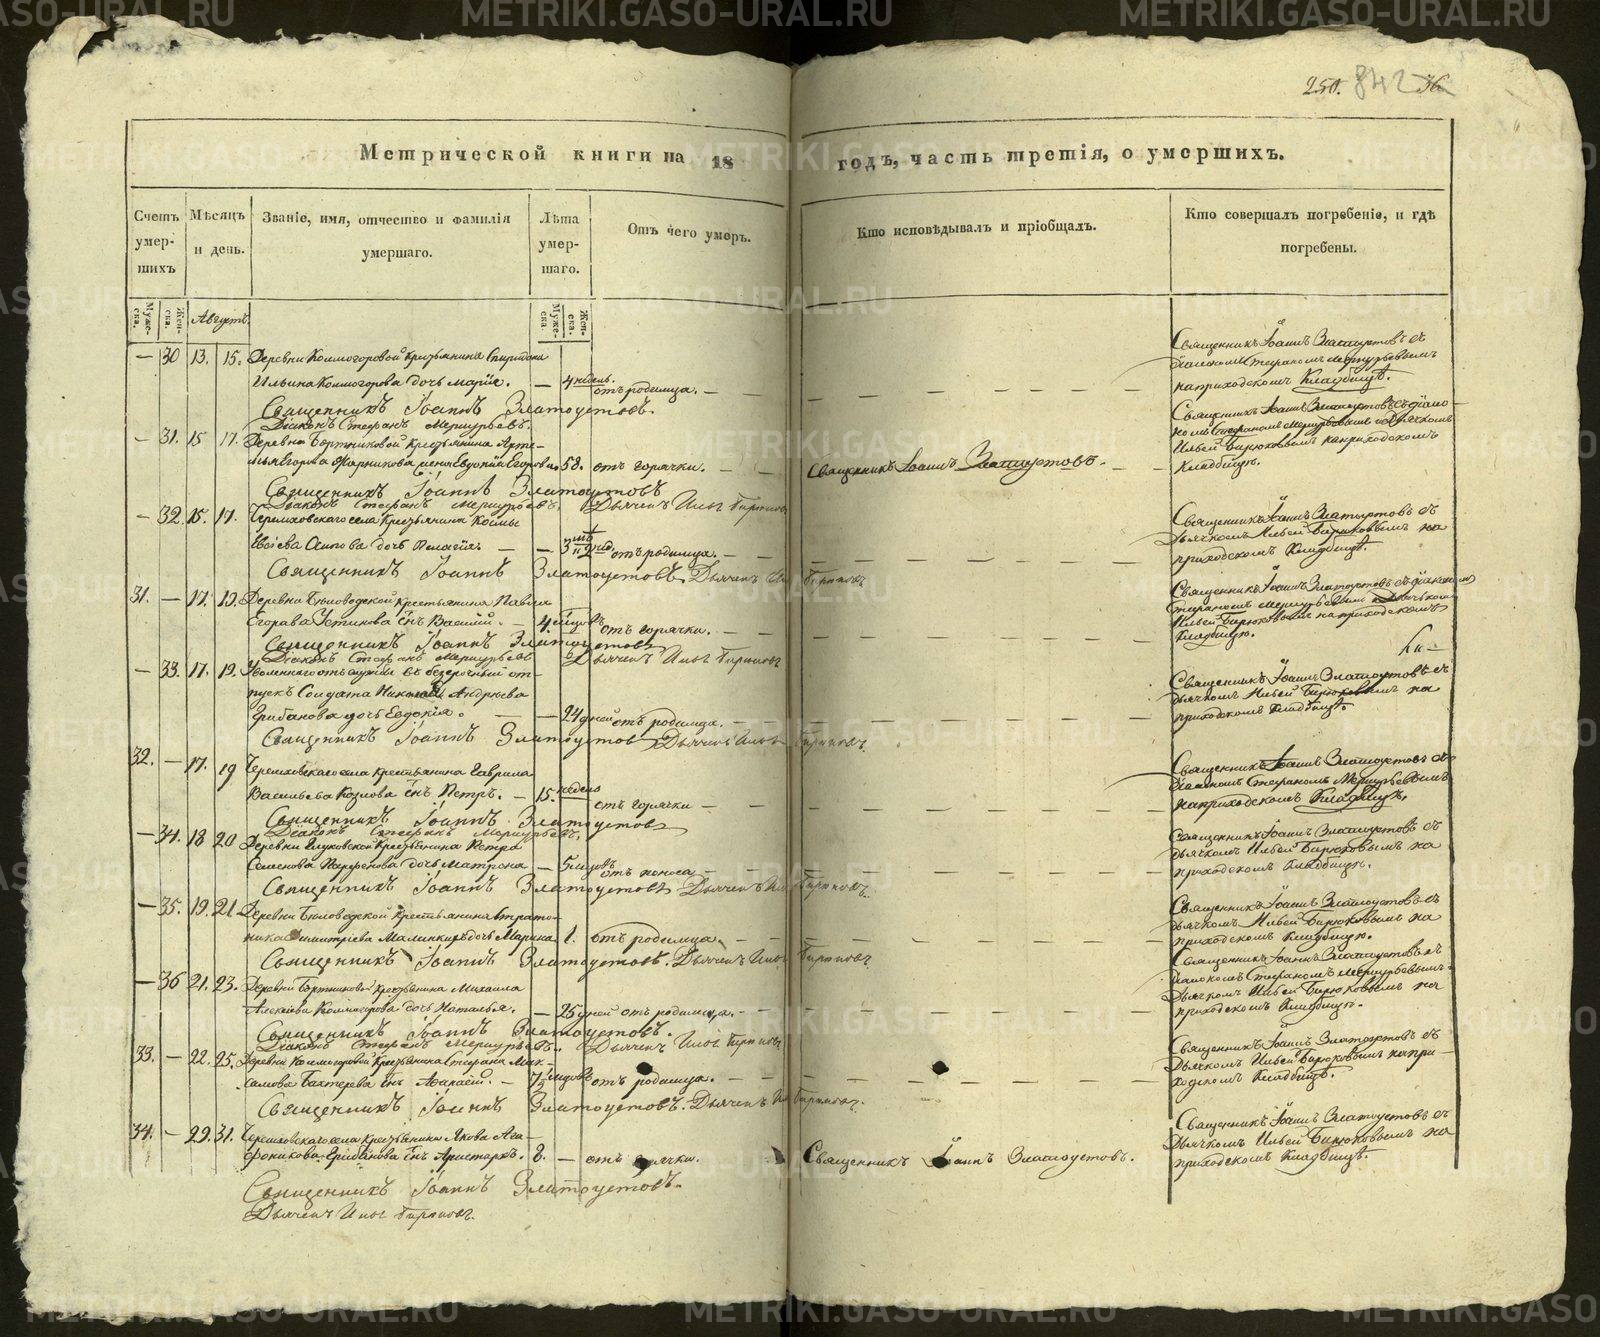 250. 842 36
Метрической книги на 18 годъ, часть третія, о умершихъ.
Счетъ умер- шихъ
Мѣсяцъ и день.
Званіе, имя, отчество и фамилія умершаго.
Лѣта умер- шаго.
Отъ чего умеръ.
Кто исповѣдывалъ и пріобщалъ.
Кто совершалъ погребеніе, и гдѣ погребены.
Муже- ска.
Жен- ска.
Августъ.
Муже- ска.
Жен- ска.
— 30 13. 15. Деревни Колмогоровой крестьянина Спиридона
Ильина Колмогорова дочь Марія. — 4 недель. отъ родимца. —
Священникъ Іоаннъ Златоустовъ.
Діаконъ Стефанъ Меркурьевъ.
Священникъ Іоаннъ Златоустовъ съ
діакономъ Стефаномъ Меркурьевымъ
на приходскомъ Кладбищѣ.
— 31. 15 17. Деревни Бортниковой крестьянина
Егорова Жарникова жена Евдокія Егорова 58. отъ горячки. —
Священникъ Іоаннъ Златоустовъ
Діаконъ Стефанъ Меркурьевъ. Дьячекъ Илья Бирюковъ
Священникъ Іоаннъ Златоустовъ.
Священникъ Іоаннъ Златоустовъ съ діако-
номъ Стефаномъ Меркурьевымъ и Дьячкомъ
Ильей Бирюковымъ на приходскомъ
Кладбищѣ.
— 32. 15. 17. села Крестьянина Космы
Осипова дочь Пелагія — — 3 отъ родимца. —
Священникъ Іоаннъ Златоустовъ. Дьячекъ Илья Бирюковъ
Священникъ Іоаннъ Златоустовъ съ
Дьячкомъ Ильей Бирюковымъ на
приходскомъ Кладбищѣ.
31. — 17. 19. Деревни крестьянина Павла
Егорова Устинова сынъ Василій. — 4 отъ горячки. —
Священникъ Іоаннъ Златоустовъ
Діаконъ Стефанъ Меркурьевъ Дьячекъ Илья Бирюковъ
Священникъ Іоаннъ Златоустовъ съ діакономъ
Стефаномъ Меркурьевымъ и Дьячкомъ
Ильей Бирюковымъ на приходскомъ
Кладбищѣ.
— 33. 17. 19. Уволеннаго отъ службы въ безсрочный от-
пускъ Солдата Николая Андреева
Грибанова дочь Евдокія. — — 24 дней отъ родимца. —
Священникъ Іоаннъ Златоустовъ Дьячекъ Илья Бирюковъ.
Священникъ Іоаннъ Златоустовъ съ
дьячкомъ Ильей Бирюковымъ на
приходскомъ Кладбищѣ.
32. — 17. 19 села крестьянина Гаврила
Васильева Козлова сынъ Петръ. — 15. недель отъ горячки —
Священникъ Іоаннъ Златоустовъ
Діаконъ Стефанъ Меркурьевъ.
Священникъ Іоаннъ Златоустовъ съ
діакономъ Стефаномъ Меркурьевымъ
на приходскомъ Кладбищѣ.
— 34. 18 20 Деревни Глуховской Крестьянина Петра
Семенова Парфенова дочь Матрона — 5 отъ поноса —
Священникъ Іоаннъ Златоустовъ Дьячекъ Илья Бирюковъ.
Священникъ Іоаннъ Златоустовъ съ
дьячкомъ Ильей Бирюковымъ на
приходскомъ Кладбищѣ.
— 35. 19. 21. Деревни крестьянина Страто-
ника Димитріева дочь Марина 1. отъ родимца —
Священникъ Іоаннъ Златоустовъ. Дьячекъ Илья Бирюковъ
Священникъ Іоаннъ Златоустовъ съ
дьячкомъ Ильей Бирюковымъ на
приходскомъ Кладбищѣ.
— 36 21. 23. Деревни Бортниковой Крестьянина Михаила
Алексѣева Колмогорова дочь Наталья. — 25 дней отъ родимца. —
Священникъ Іоаннъ Златоустовъ.
Діаконъ Стефанъ Меркурьевъ. Дьячекъ Илья Бирюковъ
Священникъ Іоаннъ Златоустовъ съ
діакономъ Стефаномъ Меркурьевымъ
Дьячкомъ Ильей Бирюковымъ на
приходскомъ Кладбищѣ.
33. — 22. 25. Деревни Колмогоровой Крестьянина Стефана Мак-
симова Бахтерева сынъ — 7 отъ родимца. —
Священникъ Іоаннъ Златоустовъ. Дьячекъ Илья Бирюковъ.
Священникъ Іоаннъ Златоустовъ съ
Дьячкомъ Ильей Бирюковымъ на при-
ходскомъ Кладбищѣ.
34. — 29. 31. села Крестьянина Якова Ага-
фоникова Грибанова сынъ Аристархъ. 8. — отъ горячки.
Священникъ Іоаннъ Златоустовъ.
Дьячекъ Илья Бирюковъ.
Священникъ Іоаннъ Златоустовъ.
Священникъ Іоаннъ Златоустовъ съ
Дьячкомъ Ильей Бирюковымъ на
приходскомъ Кладбищѣ.
METRIKI.GASO-URAL.RU